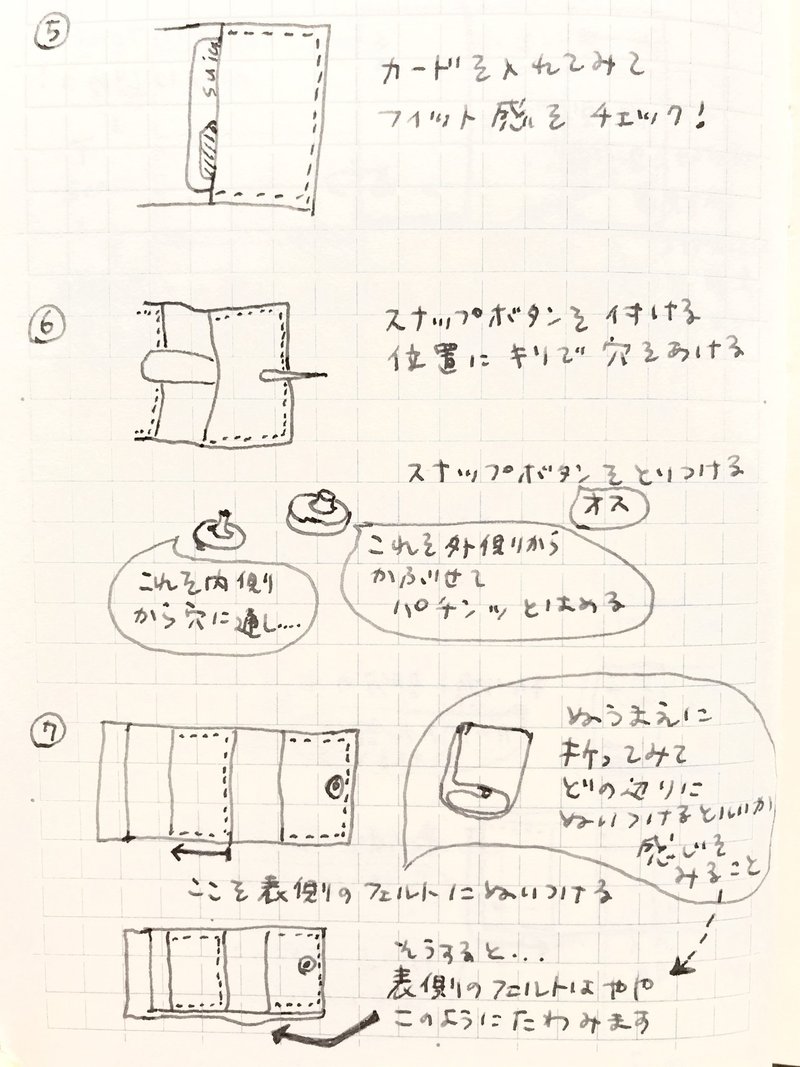 ⑤
suica
カードを入れてみて
フィット感をチェック!
⑥
スナップボタンを付ける
位置にキリで穴をあける
スナップボタンをとりつける
オス
これを内側
から穴に通し....
これを外側から
かぶせて
パチンッとはめる
⑦
ぬうまえに
折ってみて
どの辺りに
ぬいつけるといいか
感じを
みること
ここを表側のフェルトにぬいつける
そうすると...
表側のフェルトはやや
このようにたわみます